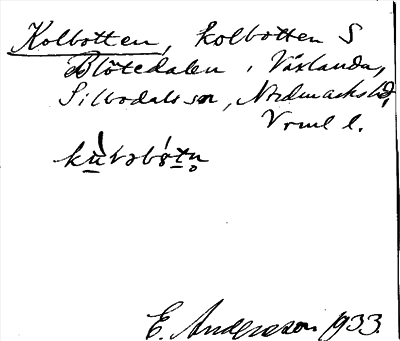 Kolbotten, kolbotten S
Blötedalen i Växlanda,
Silbodals sn, Nordmarks hd,
Vrml l.
E. Andersson 1933.